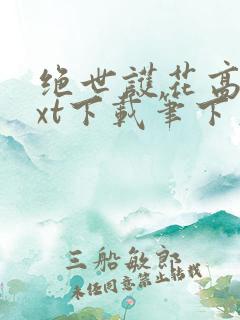 绝世護花高
xt下載筆下
三船敏郎
未经同意禁止转载